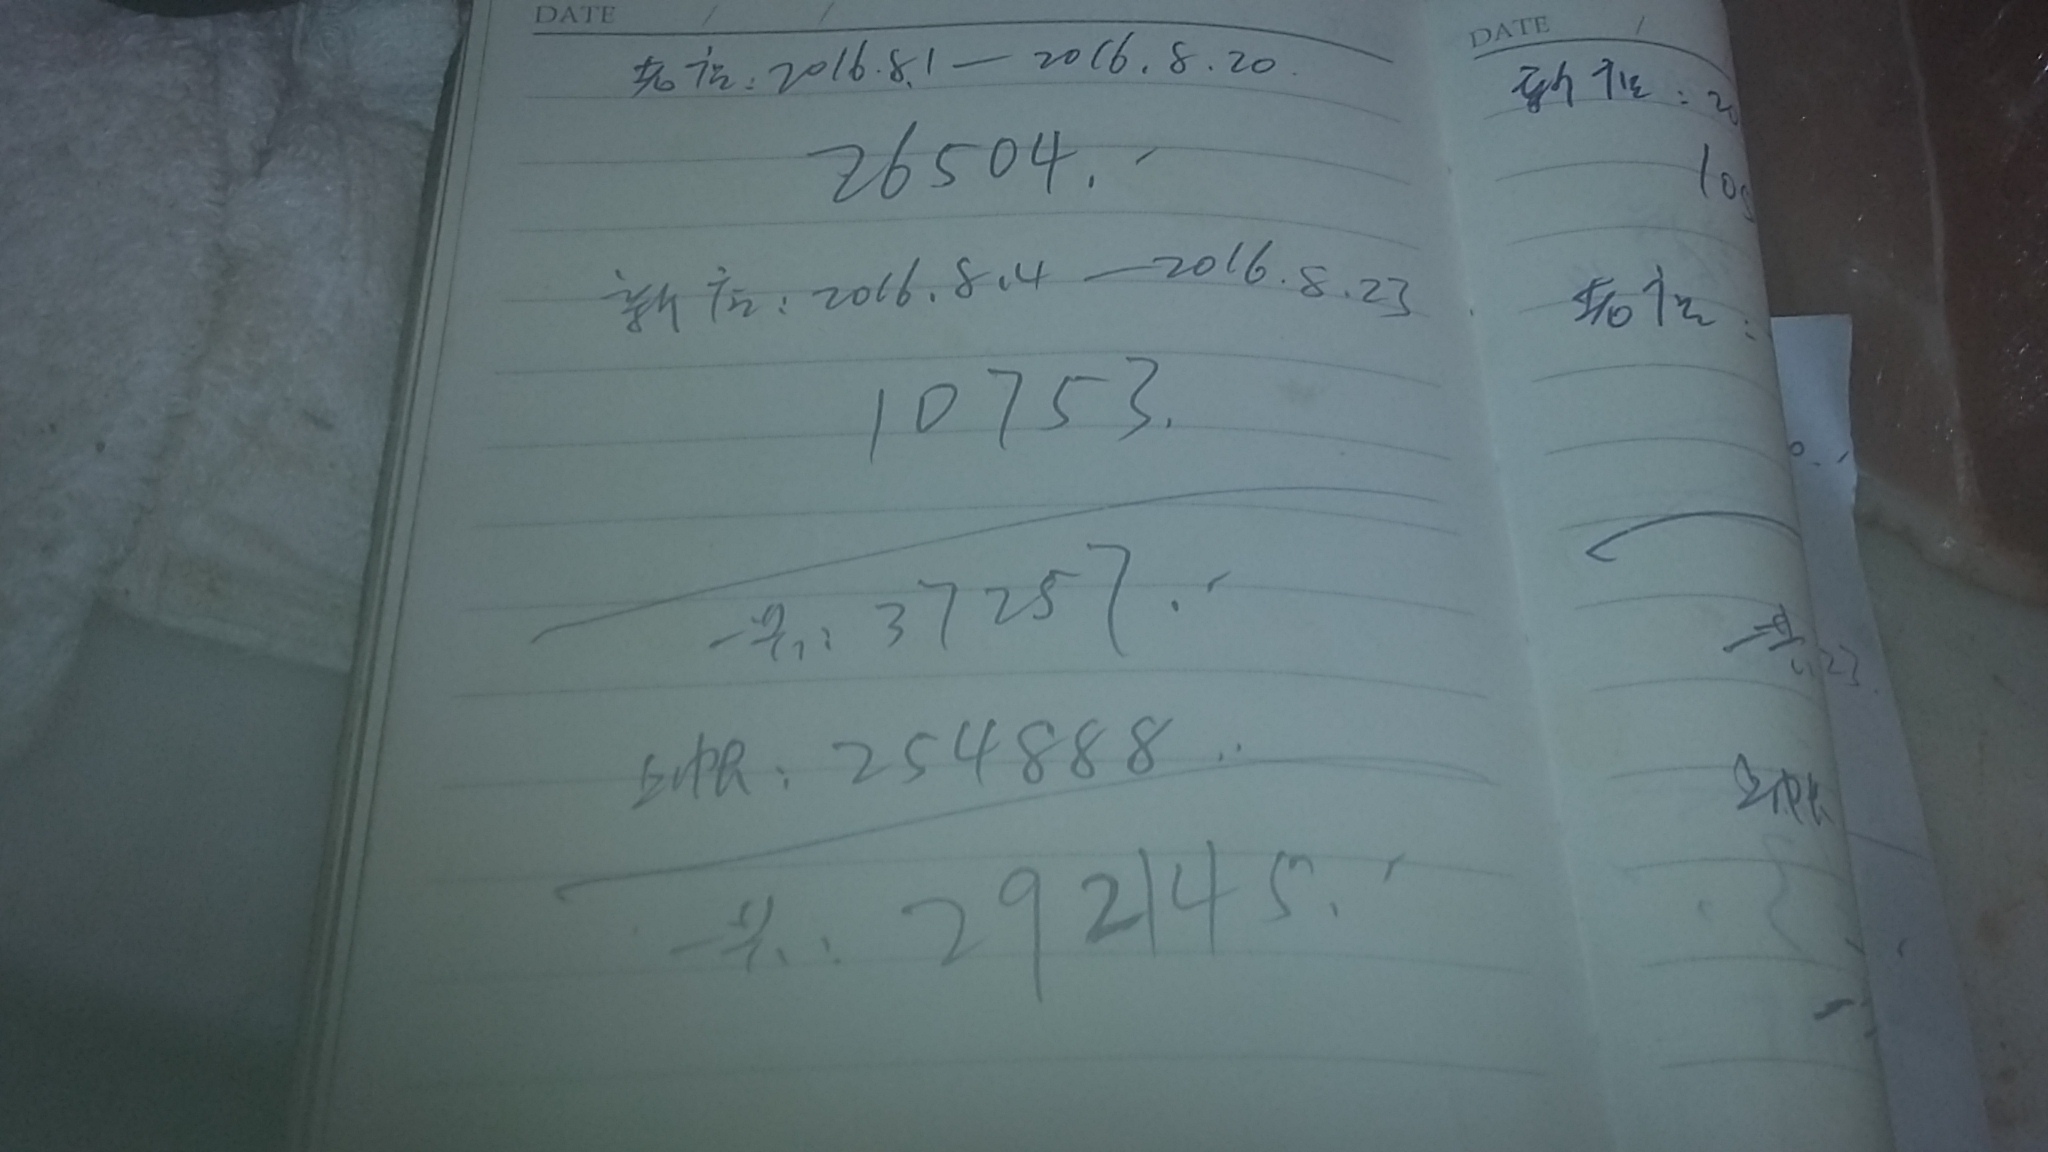 DATE / /
: 2016.8.1 — 2016.8.20.
26504.
新店: 2016.8.4 — 2016.8.23
10753.
一共: 37257.
上帐: 254888.
一共: 292145.
DATE /
新店: 20
一共
上帐